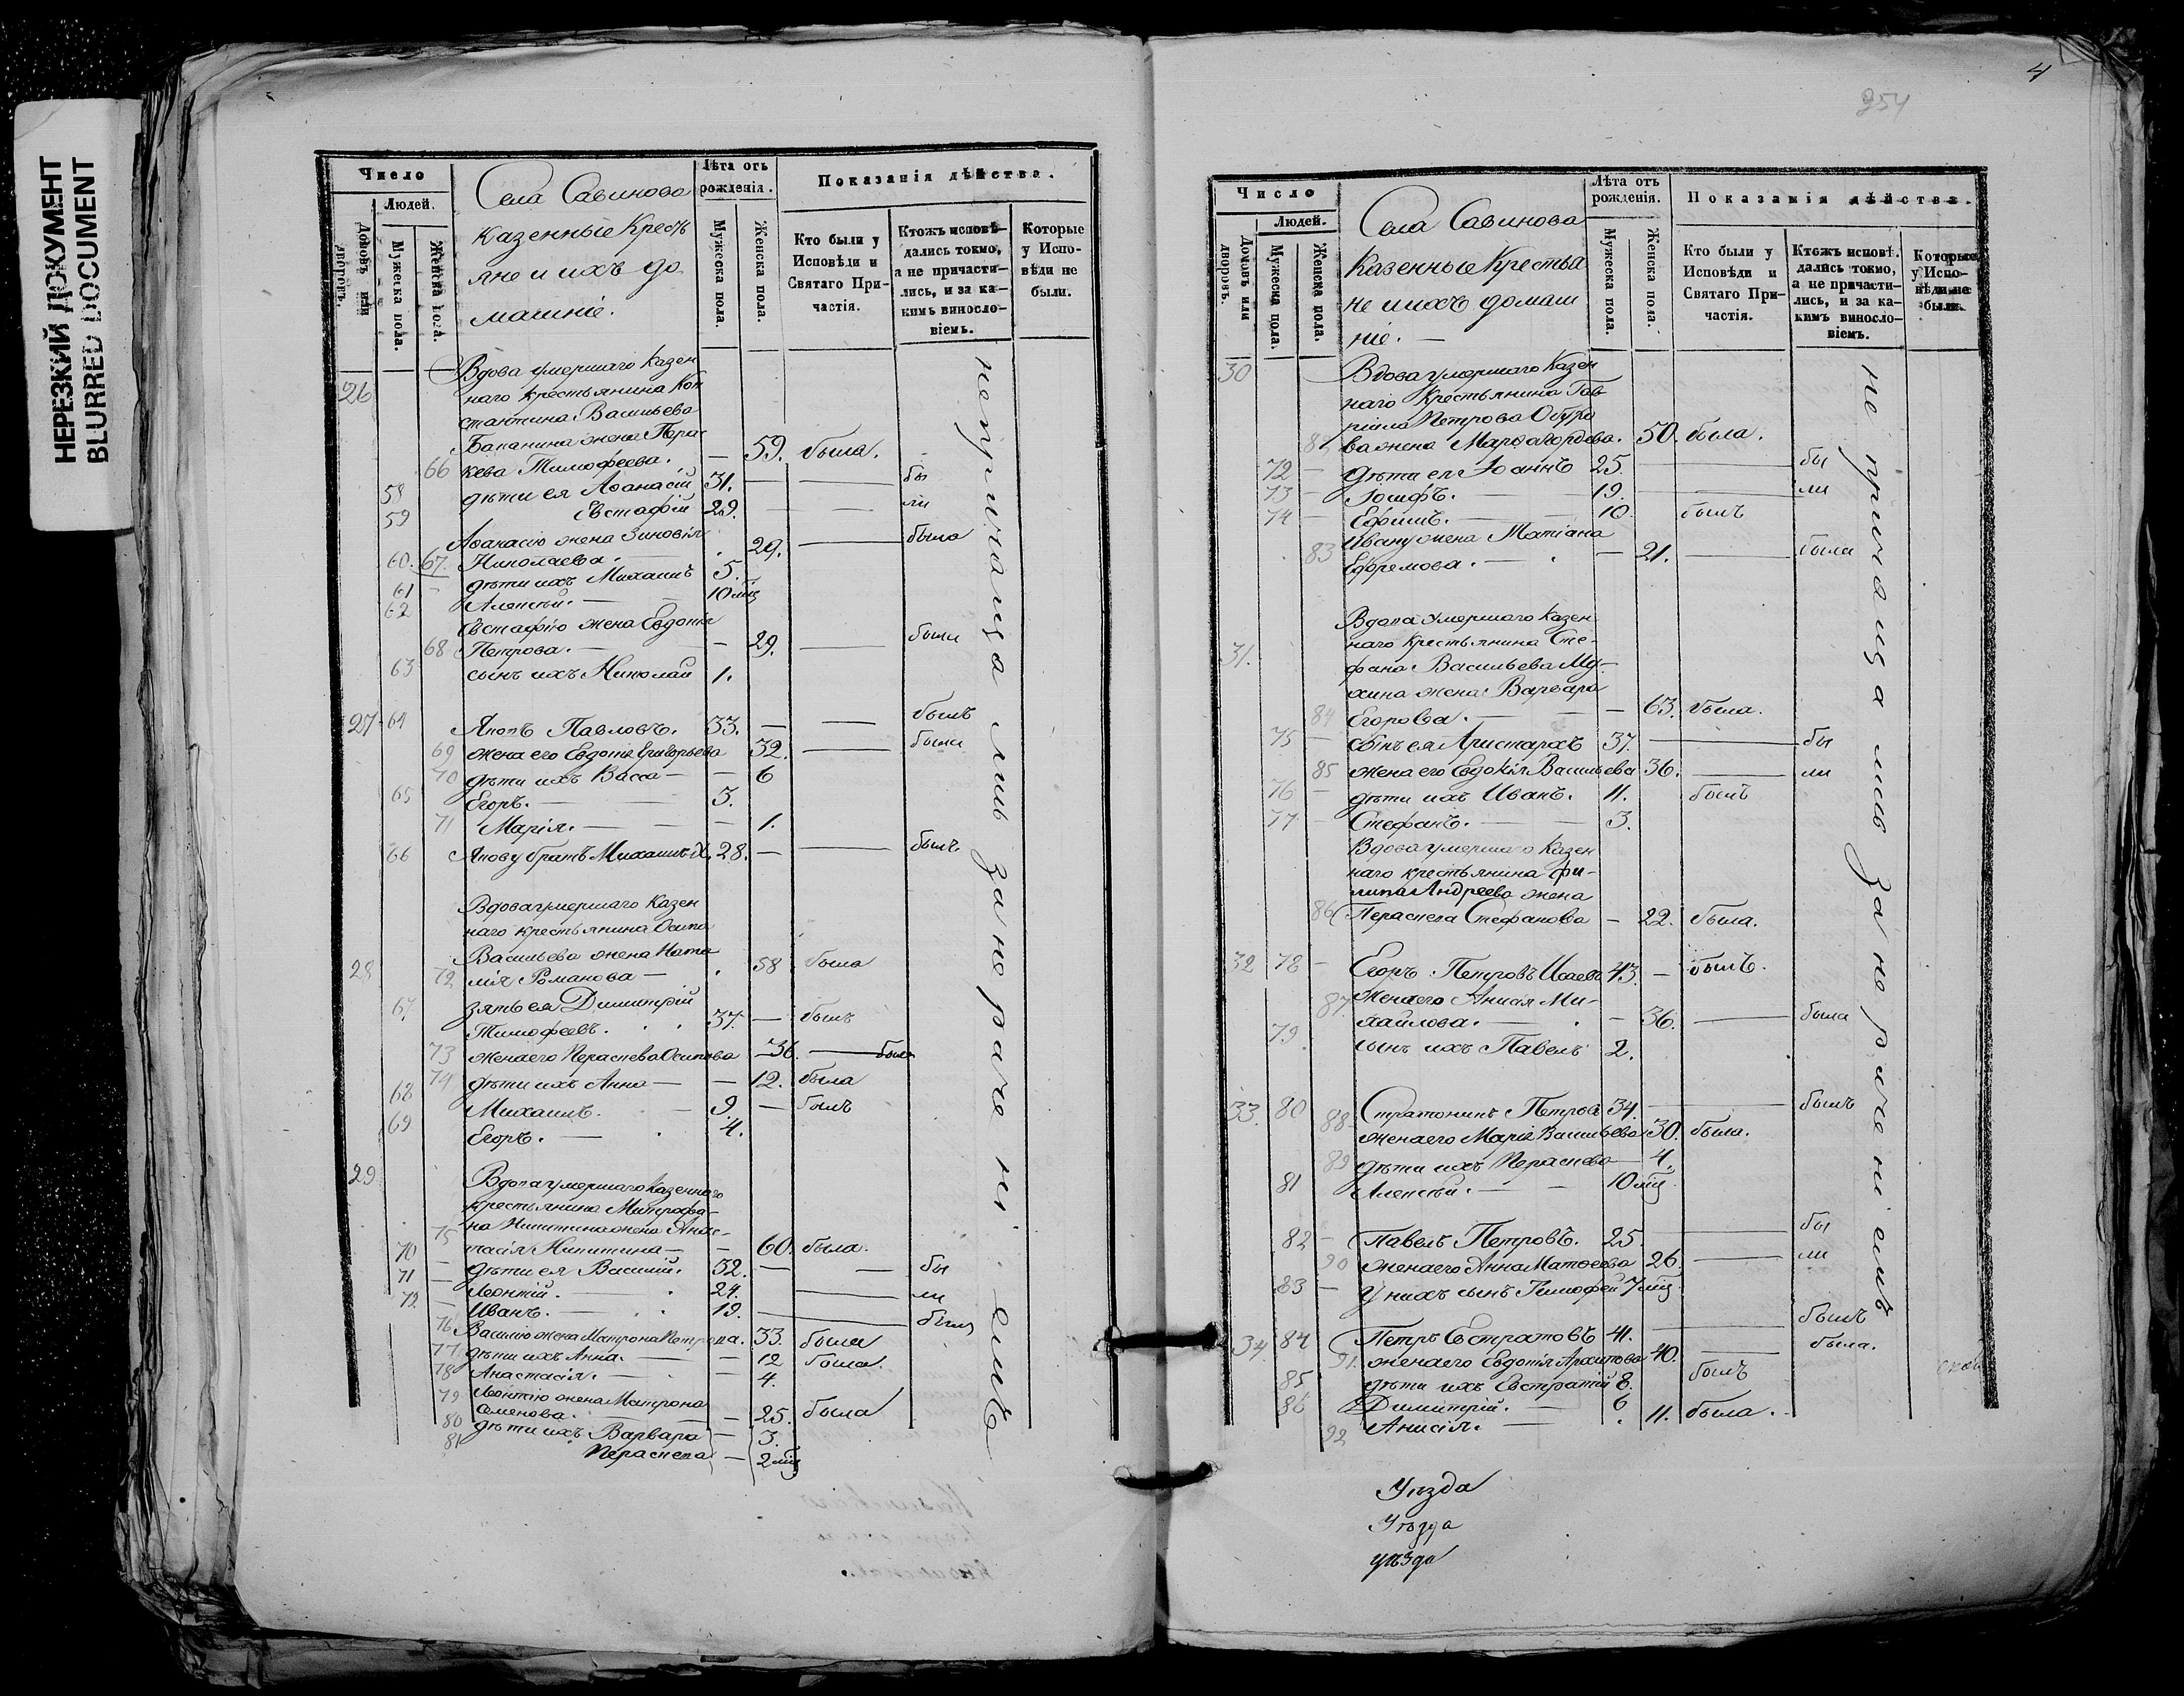 НЕРЕЗКИЙ ДОКУМЕНТ
BLURRED DOCUMENT
Число
Людей.
Домовъ или дворовъ.
Мужеска пола.
Женска пола.
Села Савинова
казенные Кресть
яне и ихъ до
машніе.
Лѣта отъ рожденія.
Мужеска пола.
Женска пола.
Показанія дѣйства.
Кто были у Исповѣди и Святаго Причастія.
Ктожъ исповѣдались токмо, а не причастились, и за какимъ винословіемъ.
Которые у Исповѣди не были.
26 Вдова умершаго Казен
наго крестьянина Кон
стантина Васильева
жена Пора
66 кева Тимофеева. — 59. была.
58 дѣти ея Аѳанасій 31. — — бы
59 Евстафій 29. — — ли
Аѳанасію жена Зиновія
60. 67. Николаева. 29. — была
61 дѣти ихъ Михаилъ 5.
62 Алексѣй. — 10 мц
Евстафію жена Евдокія
68 Петрова. — — 29. — была
63 сынъ ихъ Николай 1.
27 64 Павловъ. 33. — — былъ
69 жена его Евдокія Григорьева 32. — была
70 дѣти ихъ Васса — — 6
65 Егоръ. — — 3.
71 Марія. — — — 1.
66 братъ Михаилъ 28. — — былъ
Вдова умершаго Казен
наго крестьянина Осипа
Васильева жена Ната
28 72 лія Романова — 58 была
67. зять ея Димитрій
Тимофеевъ. 37. — былъ
73 жена его Пераскева Осипова — 36. — была
74 дѣти ихъ Анна — — 12. была
68 Михаилъ. — 9. — былъ
69 Егоръ. — 4.
29 Вдова умершаго Казеннаго
крестьянина Митрофа-
на Никитина жена Анас-
75 тасія Никитина — — 60. была.
70 дѣти ея Василій. 32. — — бы
71 Леонтій. — 24. — ли
72 Иванъ. — 19. — былъ
76 Василію жена Матрона Петрова. 33. была
77 дѣти ихъ Анна. — — 12 была.
78 Анастасія. — — 4.
79 Леонтію жена Матрона
Семенова. — — 25. была
80 дѣти ихъ Варвара — 3.
81 Пераскева — 2 мц
не причащались за нераченіемъ
4
254
Число
Людей.
Домовъ или дворовъ.
Мужеска пола.
Женска пола.
Села Савинова
Казенные Крестья
не и ихъ домаш
ніе. —
Лѣта отъ рожденія.
Мужеска пола.
Женска пола.
Показанія дѣйства.
Кто были у Исповѣди и Святаго Причастія.
Ктожъ исповѣдались токмо, а не причастились, и за какимъ винословіемъ.
Которые у Исповѣди не были.
30 Вдова умершаго Казен
наго Крестьянина Гав
ріила Петрова
82 жена Марѳа Гордѣева. 50. была.
72 — дѣти ея Іоаннъ 25. — бы
73 — Іосифъ. — 19. — ли
74 — Ефимъ. — 10. былъ
Ивану жена Матіана
83 Ефремова. — — 21. — была
Вдова умершаго Казен
наго крестьянина Сте-
31. фана Васильева Му-
хина жена Варвара
84 Егорова. — — — 63. была.
75 — сынъ ея Аристархъ 37. — бы
85 жена его Евдокія Васильева 36. — ли
76 — дѣти ихъ Иванъ. 11. былъ
77 — Стефанъ. — — 3.
Вдова умершаго Казен
наго крестьянина Фи-
липа Андреева жена
86 Пераскева Стефанова — 22. была.
32 78 — Егоръ Петровъ Исаевъ 43. — былъ.
87. жена его Анисія Ми-
хайлова. — — 36. — была
79. сынъ ихъ Павелъ 2.
33. 80 Стратоникъ Петровъ 34. — былъ
88. жена его Марія Васильева 30. была.
89 дѣти ихъ Пераскева — 4.
81 Алексѣй. — — 10 мц
82 — Павелъ Петровъ. 25. — бы
90 жена его Анна Матвеева 26. — ли
83 — у нихъ сынъ Тимофей 7 мц
34. 84 Петръ Евстратовъ 41. — былъ
91. жена его Евдокія Архипова 40. — была.
85 дѣти ихъ Евстратій 8. былъ
86 Димитрій. — 6
92 Анисія. — 11. была.
не причащались за нераченіемъ
Уѣзда
Уѣзда
уѣзда